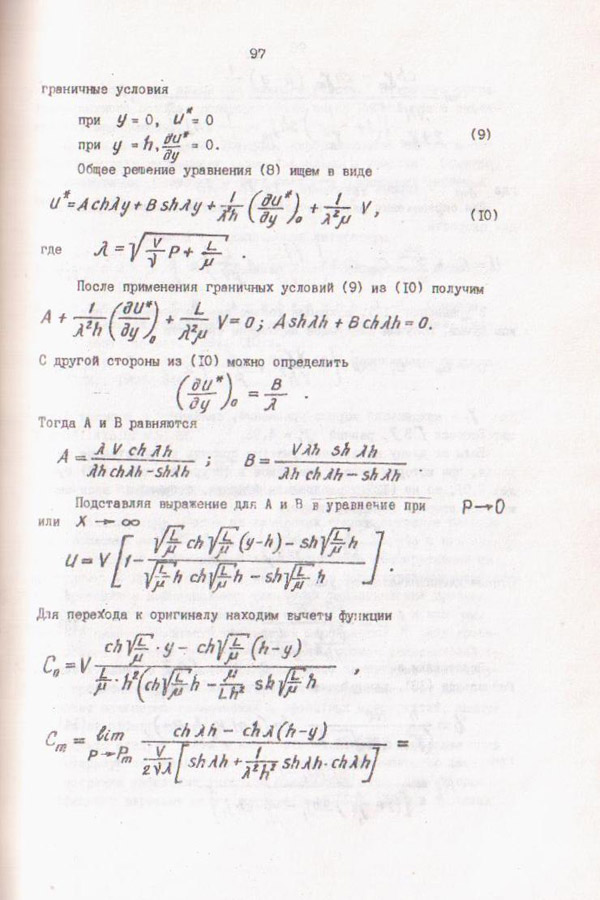 97
граничные условия
при y = 0, U* = 0
при y = h, ∂U*/∂y = 0. (9)
Общее решение уравнения (8) ищем в виде
U* = A chλy + B shλy + 1/(λ²h) (∂U*/∂y)₀ + 1/(λ²μ) V, (10)
где λ = √(V/√ P + L/μ) .
После применения граничных условий (9) из (10) получим
A + 1/(λ²h) (∂U*/∂y)₀ + L/(λ²μ) V = 0; A shλh + B chλh = 0.
С другой стороны из (10) можно определить
(∂U*/∂y)₀ = B/λ .
Тогда А и В равняются
A = λ V ch λh / (λh chλh - shλh) ; B = Vλh sh λh / (λh chλh - shλh)
Подставляя выражение для А и В в уравнение при p→0
или X → ∞
U = V [1 - (√(L/μ) ch√(L/μ)(y-h) - sh√(L/μ) h) / (√(L/μ) h ch√(L/μ) h - sh√(L/μ) h)] .
Для перехода к оригиналу находим вычеты функции
C₀ = V (ch√(L/μ) · y - ch√(L/μ) (h-y)) / (L/μ · h² (ch√(L/μ) h - μ/(Lh²) sh√(L/μ) h) ,
Cₘ = lim P→Pₘ (ch λh - chλ(h-y)) / (V/(2√λ) [shλh + 1/(λ²h²) shλh · chλh]) =